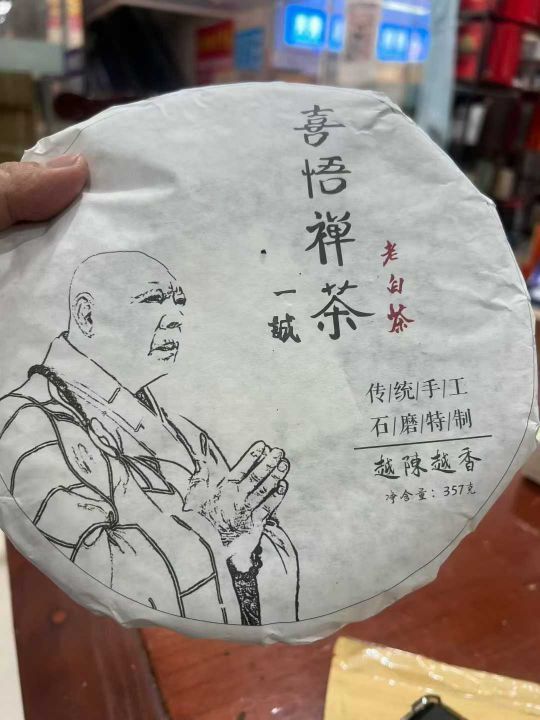 喜悟禅茶
一誠
老白茶
传/统/手/工
石/磨/特/制
越陳越香
净含量：357克